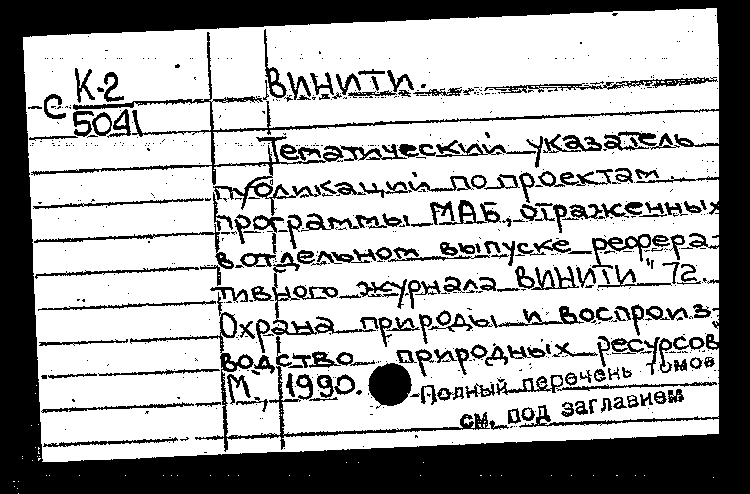 с К-2
5041
ВИНИТИ.
Тематический указатель
публикаций по проектам
программы МАБ, отраженных
в отдельном выпуске рефера-
тивного журнала ВИНИТИ "72.
Охрана природы и воспроиз-
водство природных ресурсов"
М., 1990.
Полный перечень томов
см. под заглавием